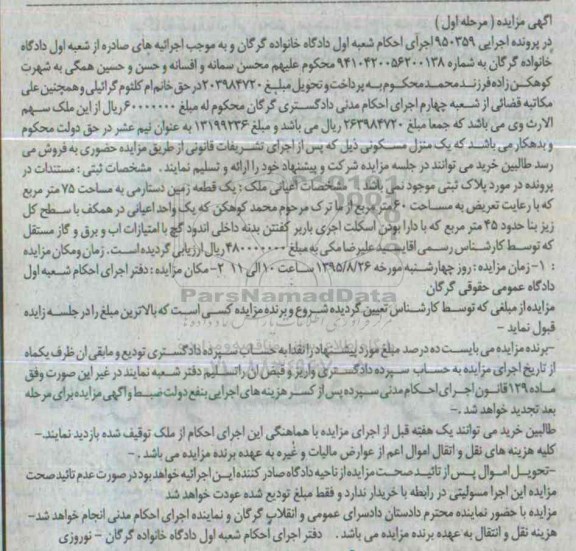 آگهی مزایده ( مرحله اول )
در پرونده اجرایی ۹۵۰۳۵۹ اجرای احکام شعبه اول دادگاه خانواده گرگان و به موجب اجرائیه های صادره از شعبه اول دادگاه
خانواده گرگان به شماره ۹۴۱۰۴۲۰۰۵۶۲۰۰۱۳۸ محکوم علیهم محسن سمانه و افسانه و حسن و حسین همگی به شهرت
کوهکن زاده فرزند محمد محکوم به پرداخت و تحویل مبلغ ۲۰۳۹۸۴۷۲۰ در حق خانم ام کلثوم گرائیلی و همچنین علی
مکاتبه قضائی از شعبه چهارم اجرای احکام مدنی دادگستری گرگان محکوم له مبلغ ۶۰۰۰۰۰۰۰ ریال از این ملک سهم
الارث وی می باشد که جمعا مبلغ ۲۶۳۹۸۴۷۲۰ ریال می باشد و مبلغ ۱۳۱۹۹۲۳۶ به عنوان نیم عشر در حق دولت محکوم
و بدهکار می باشد که یک منزل مسکونی ذیل که پس از اجرای تشریفات قانونی از طریق مزایده حضوری به فروش می
رسد طالبین خرید می توانند در جلسه مزایده شرکت و پیشنهاد خود را ارائه و تسلیم نمایند . مشخصات ثبتی : مستندات در
پرونده در مورد پلاک ثبتی موجود نمی باشد . مشخصات اعیانی ملک : یک قطعه زمین دستارمی به مساحت ۷۵ متر مربع
که با رعایت تعریض به مساحت ۶۰ متر مربع از ما ترک مرحوم محمد کوهکن که یک واحد اعیانی در همکف با سطح کل
زیز بنا حدود ۴۵ متر مربع که با دارا بودن اسکلت اجری باربر کفتتن بدنه داخلی اندود گچ با امتیازات اب و برق و گاز مستقل
که توسط کارشناس رسمی اقای سید علیرضا مکی به مبلغ ۴۸۰۰۰۰۰۰۰ ریال ارزیابی گردیده است . زمان ومکان مزایده
: ۱- زمان مزایده : روز چهارشنبه مورخه ۱۳۹۵/۸/۲۶ ساعت ۱۰ الی ۱۱ ۲- مکان مزایده : دفتر اجرای احکام شعبه اول
دادگاه عمومی حقوقی گرگان
ParsNamadData
مزایده از مبلغی که توسط کارشناس تعیین گردیده شروع و برنده مزایده کسی است که بالاترین مبلغ را در جلسه زایده
قبول نماید –
-برنده مزایده می بایست ده درصد مبلغ مورد پیشنهاد را نقدا به حساب سپرده دادگستری تودیع و مابقی ان ظرف یکماه
از تاریخ اجرای مزایده به حساب سپرده دادگستری واریز و قبض ان را تسلیم دفتر شعبه نمایند در غیر این صورت وفق
ماده ۱۲۹ قانون اجرای احکام مدنی سپرده پس از کسر هزینه های اجرایی بنفع دولت ضبط و آگهی مزایده برای مرحله
بعد تجدید خواهد شد .–
طالبین خرید می توانند یک هفته قبل از اجرای مزایده با هماهنگی این اجرای احکام از ملک توقیف شده بازدید نمایند.–
کلیه هزینه های نقل و اتقال اموال اعم از عوارض مالیات و غیره به عهده برنده مزایده می باشد . –
-تحویل اموال پس از تائید صحت مزایده از ناحیه دادگاه صادر کننده این اجرائیه خواهد بود در صورت عدم تائید صحت
مزایده این اجرا مسولیتی در رابطه با خریدار ندارد و فقط مبلغ تودیع شده عودت خواهد شد
مزایده با حضور نماینده محترم دادستان دادسرای عمومی و انقلاب گرگان و نماینده اجرای احکام مدنی انجام خواهد شد–
هزینه نقل و انتقال به عهده برنده مزایده می باشد . دفتر اجرای احکام شعبه اول دادگاه خانواده گرگان – نوروزی